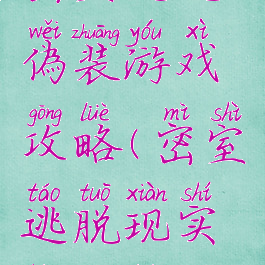 wěi zhuāng yóu xì
偽装游戏
gōng lüè mì shì
攻略(密室
táo tuō xiàn shí
逃脱现实